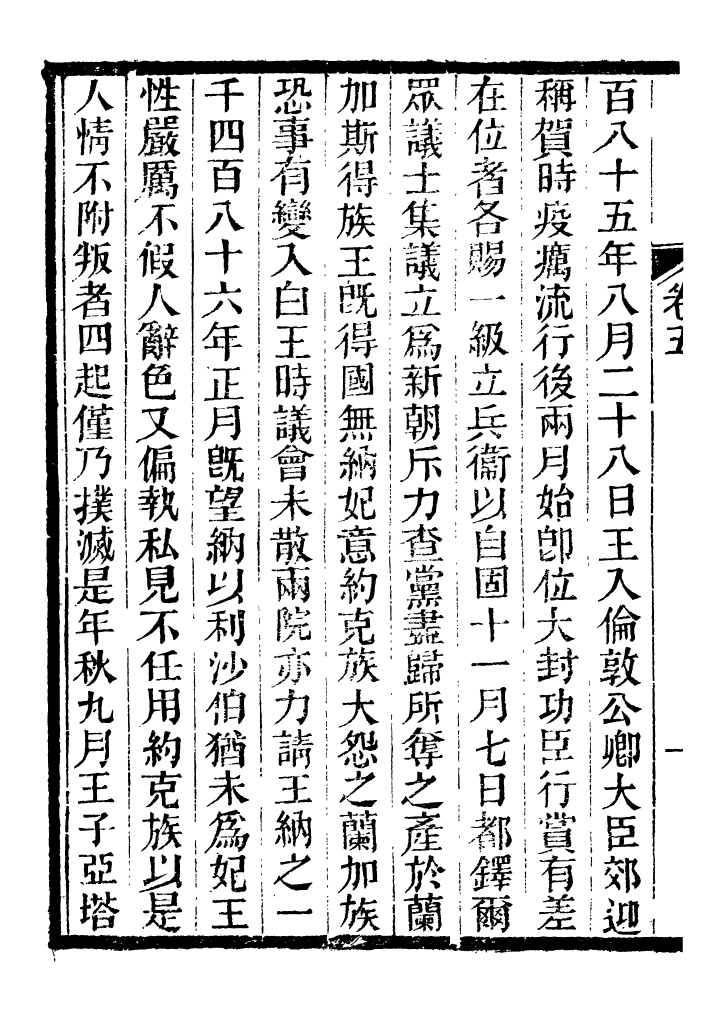 卷五
一
百八十五年八月二十八日王入倫敦公卿大臣郊迎
稱賀時疫癘流行後兩月始卽位大封功臣行賞有差
在位者各賜一級立兵衞以自固十一月七日都鐸爾
眾議士集議立爲新朝斥力查黨盡歸所奪之產於蘭
加斯得族王旣得國無納妃意約克族大怨之蘭加族
恐事有變入白王時議會未散兩院亦力請王納之一
千四百八十六年正月旣望納以利沙伯猶未爲妃王
性嚴厲不假人辭色又偏執私見不任用約克族以是
人情不附叛者四起僅乃撲滅是年秋九月王子亞塔